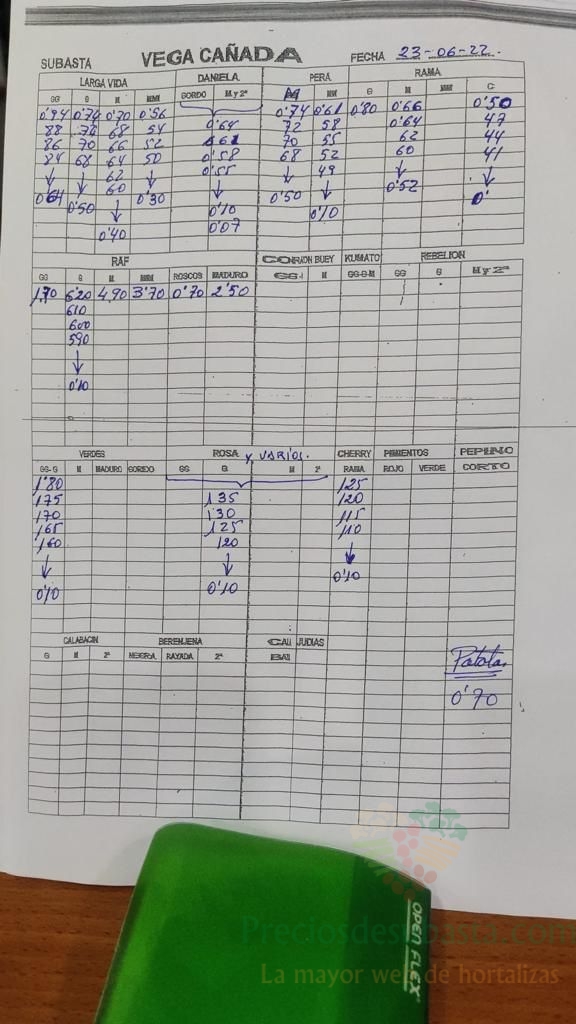 SUBASTA VEGA CAÑADA FECHA 23-06-22.
LARGA VIDA DANIELA PERA RAMA
GG G M MMM GORDO M y 2ª M MM G M MM C
0'94 0'74 0'70 0'56 0'74 0'61 0'80 0'66 0'50
88 74 68 54 0'64 72 58 0'64 47
86 70 66 52 61 70 55 62 44
84 68 64 50 0'58 68 52 60 41
↓ ↓ 62 ↓ 0'55 ↓ 49 ↓ ↓
0'64 60 0'30 ↓ 0'50 ↓ 0'52 0'
0'50 ↓ 0'10 0'10
0'40 0'07
RAF CORAZON BUEY KUMATO REBELION
GG G M MM ROSCOS MADURO GG-I M GG-G-M GG G M y 2ª
1,70 6'20 4,90 3'70 0'70 2'50
610
600
590
↓
0'10
VERDES ROSA y VARIOS. CHERRY PIMIENTOS PEPINO
GG-G M MADURO GORDO GG G M 2ª RAMA ROJO VERDE CORTO
1'80 125
175 135 120
170 130 115
165 125 110
160 120 ↓
↓ ↓ 0'10
0'10 0'10
CALABACIN BERENJENA CALI JUDIAS
G M 2ª NEGRA RAYADA 2ª BAI
Patata
0'70
OPEN FLEX
Preciosdesubasta.com
La mayor web de hortalizas